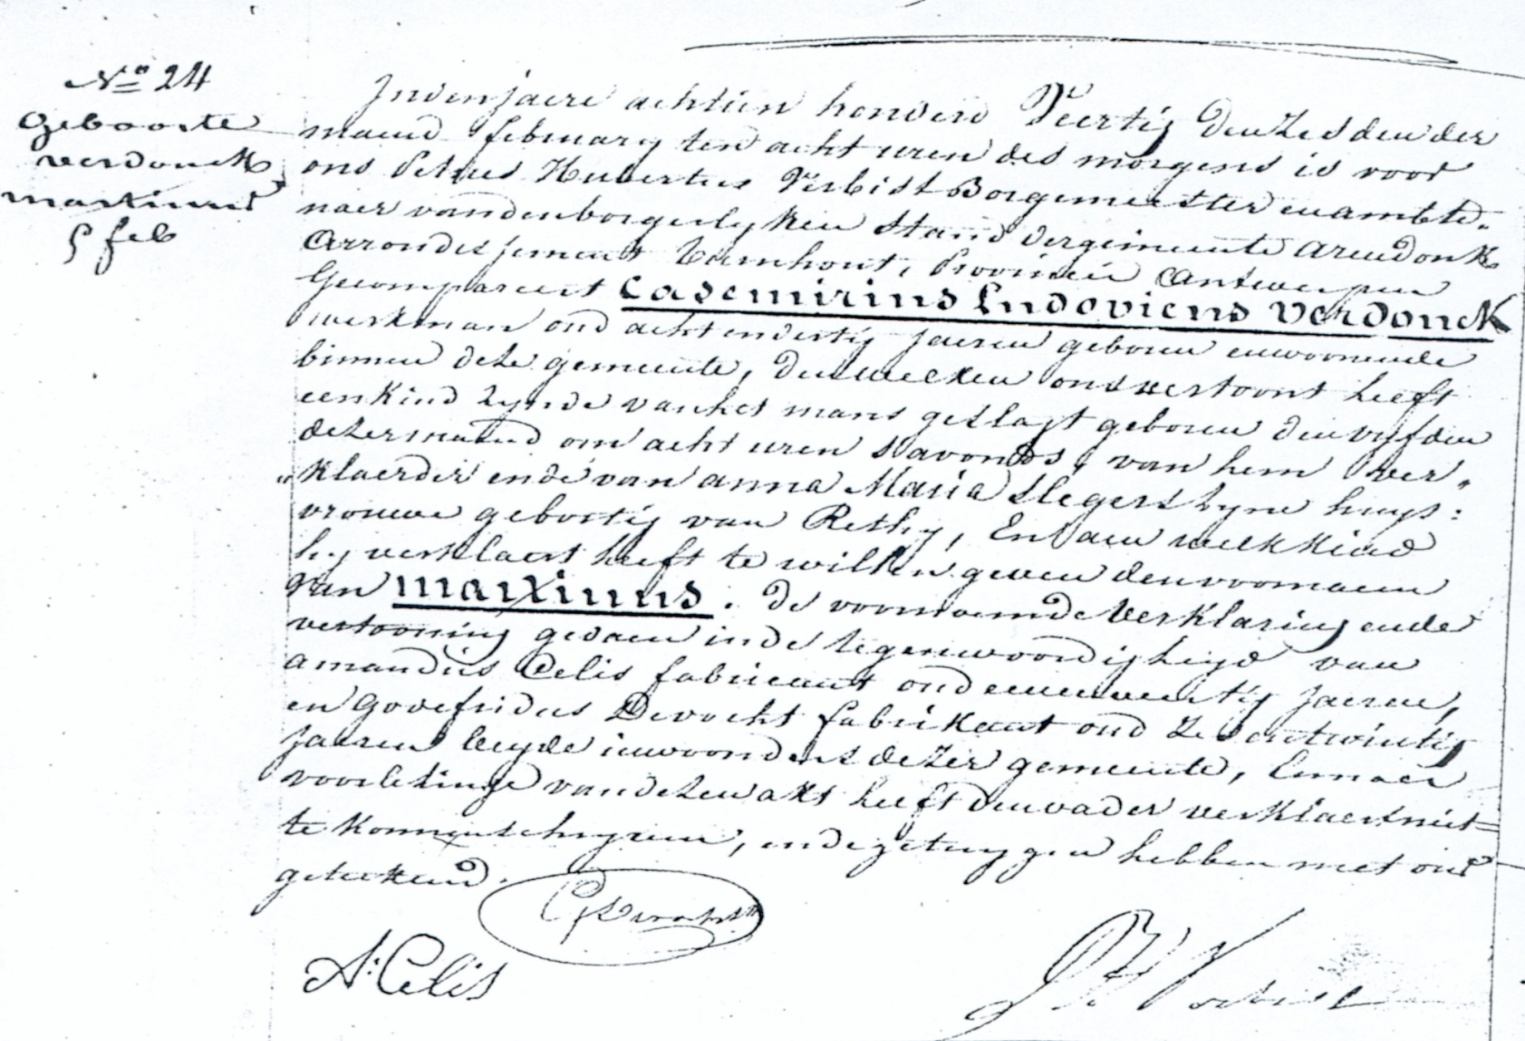 No 24
Geboorte
verdonck
martinus
5 feb
In den jaere achtien hondero Veertig den zesden der
maend february ten acht uren des morgens is voor
ons Petrus Hubertus Verbist Borgemeester en ambte„
naer van den borgerlyken stand der gemeente arendonk
Arrondissement Turnhout, Provincie Antwerpen
Gecompareert Casemirius Ludovicus Verdonck
werkman oud acht en dertig jaeren geboren en woonende
binnen deze gemeente, den welken ons vertoont heeft
een kind zynde van het mans geslagt geboren den vyfden
dezer maend om acht uren s'avonds, van hem ver„
„klaerder ende van anna Maria Slegers zyne huys:
vrouwe gebortig van Rethy, En aen welk kind
hy verklaert heeft te willen geven den voornaem
van Martinus. de voornoemde verklaring ende
vertooning gedaen in de tegenwoordigheyd van
amandus Celis fabricant oud eenenveertig jaeren,
en Govefridus Devocht fabrikant oud zesentwintig
jaeren beyde inwoonders dezer gemeente, En naer
voorlezinge van dezen akt heeft den vader verklaert niet=
te konnen schryven, en de getuygen hebben met ons
geteekend.
G Devocht
A: Celis
P H Verbist